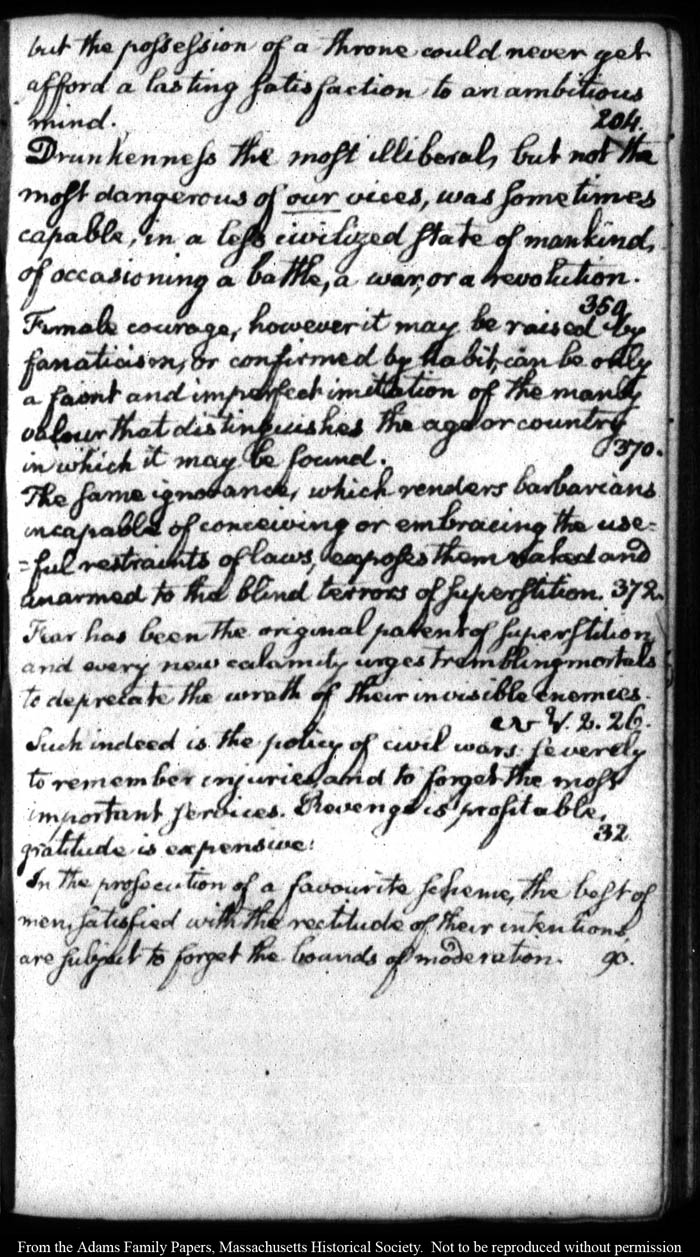 but the possession of a throne could never yet
afford a lasting satisfaction to an ambitious
mind. 204.
Drunkenness the most illiberal, but not the
most dangerous of our vices, was sometimes
capable, in a less civilized state of mankind,
of occasioning a battle, a war, or a revolution.
350
Female courage, however it may be raised by
fanaticism, or confirmed by habit, can be only
a faint and imperfect imitation of the manly
valour that distinguishes the age or country
in which it may be found. 370.
The same ignorance, which renders barbarians
incapable of conceiving or embracing the use=
=ful restraints of laws, exposes them naked and
unarmed to the blind terrors of superstition. 372.
Fear has been the original parent of superstition,
and every new calamity urges trembling mortals
to deprecate the wrath of their invisible enemies.
V. 2. 26.
Such indeed is the policy of civil war: severely
to remember injuries, and to forget the most
important services. Revenge is profitable,
gratitude is expensive. 32
In the prosecution of a favourite scheme, the best of
men, satisfied with the rectitude of their intentions
are subject to forget the bounds of moderation. 90.
From the Adams Family Papers, Massachusetts Historical Society. Not to be reproduced without permission